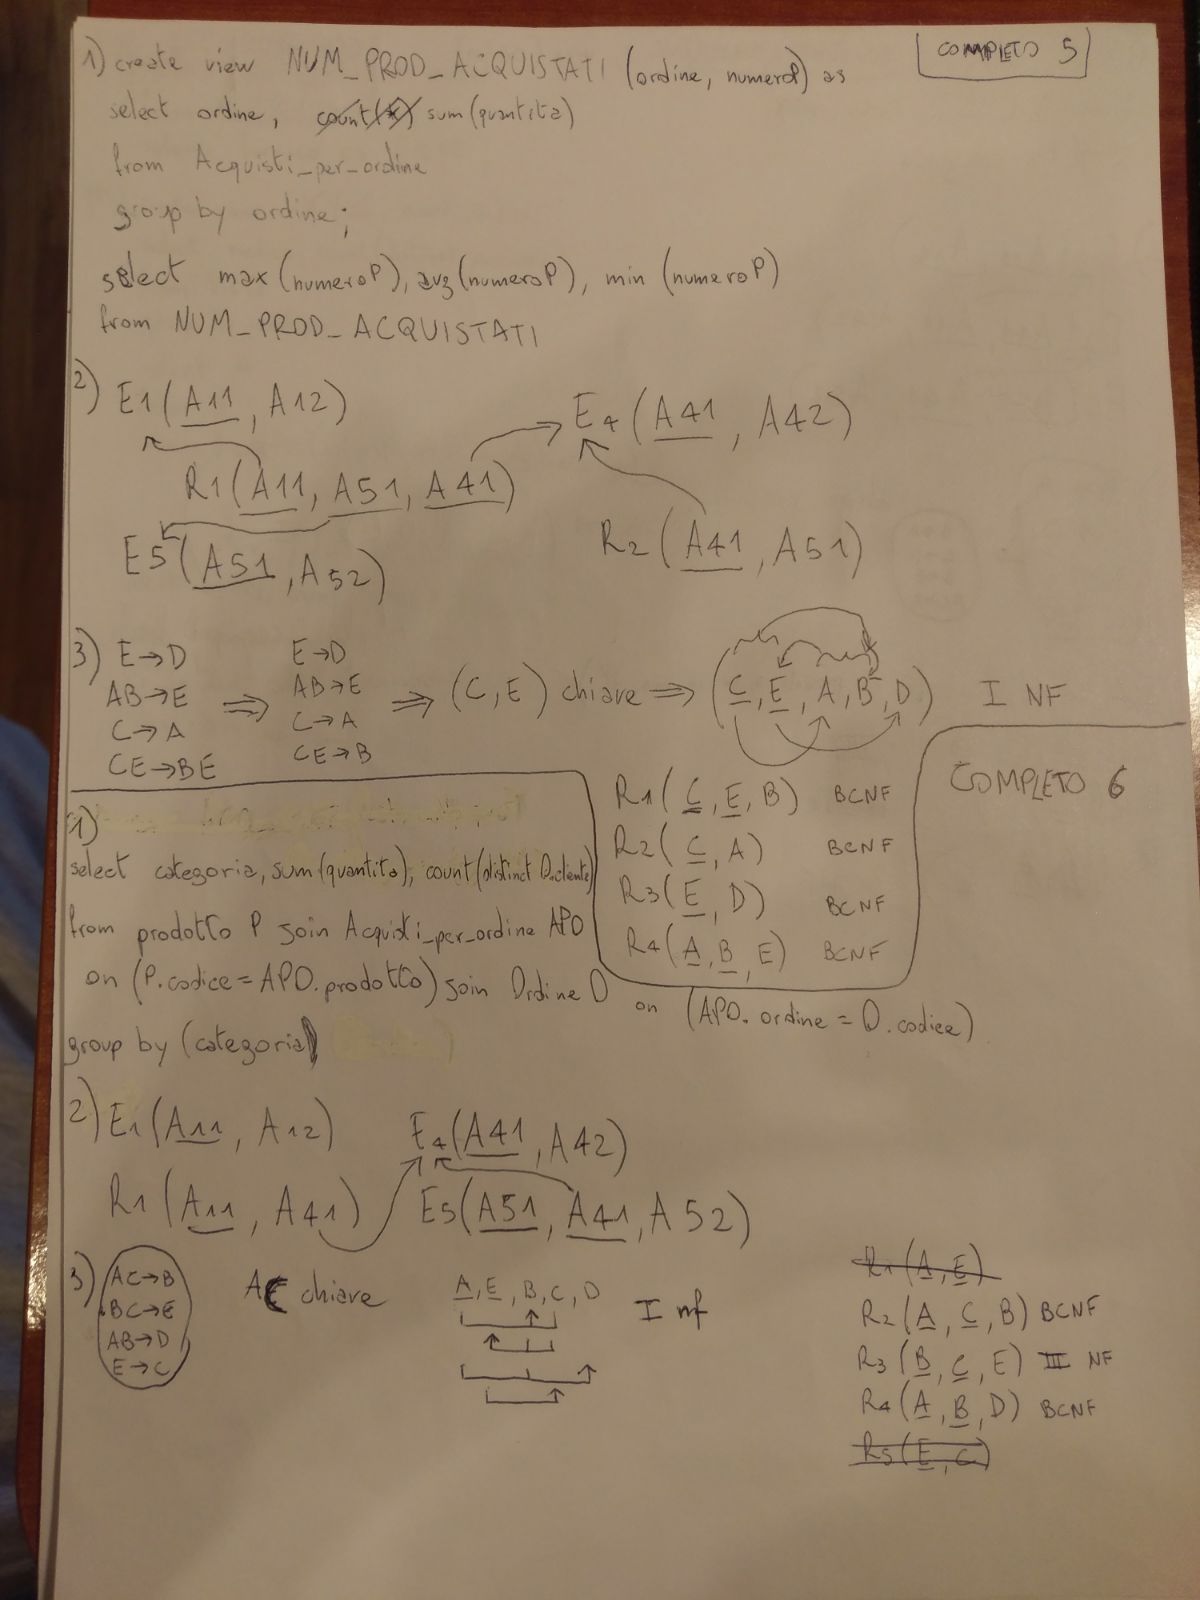 COMPLETO 5
1) create view NUM_PROD_ACQUISTATI (ordine, numeroP) as
select ordine, count(*) sum(quantita)
from Acquisti_per_ordine
group by ordine;
select max(numeroP), avg(numeroP), min (numeroP)
from NUM_PROD_ACQUISTATI
2) E1(A11, A12)
E4(A41, A42)
R1(A11, A51, A41)
R2(A41, A51)
E5(A51, A52)
3) E→D E→D
AB→E ⇒ AB→E ⇒ (C, E) chiave ⇒ (C, E, A, B, D) I NF
C→A C→A
CE→BE CE→B
R1(C, E, B) BCNF
R2(C, A) BCNF
R3(E, D) BCNF
R4(A, B, E) BCNF
COMPLETO 6
1)
select categoria, sum(quantita), count(distinct O.cliente)
from prodotto P join Acquisti_per_ordine APO
on (P.codice = APO.prodotto) join Ordine O on (APO.ordine = O.codice)
group by (categoria)
2) E1(A11, A12) E4(A41, A42)
R1(A11, A41) E5(A51, A41, A52)
3) AC→B
BC→E
AB→D
E→C
chiave
A, E, B, C, D I nf
R1(A, E)
R2(A, C, B) BCNF
R3(B, C, E) III NF
R4(A, B, D) BCNF
R5(E, C)